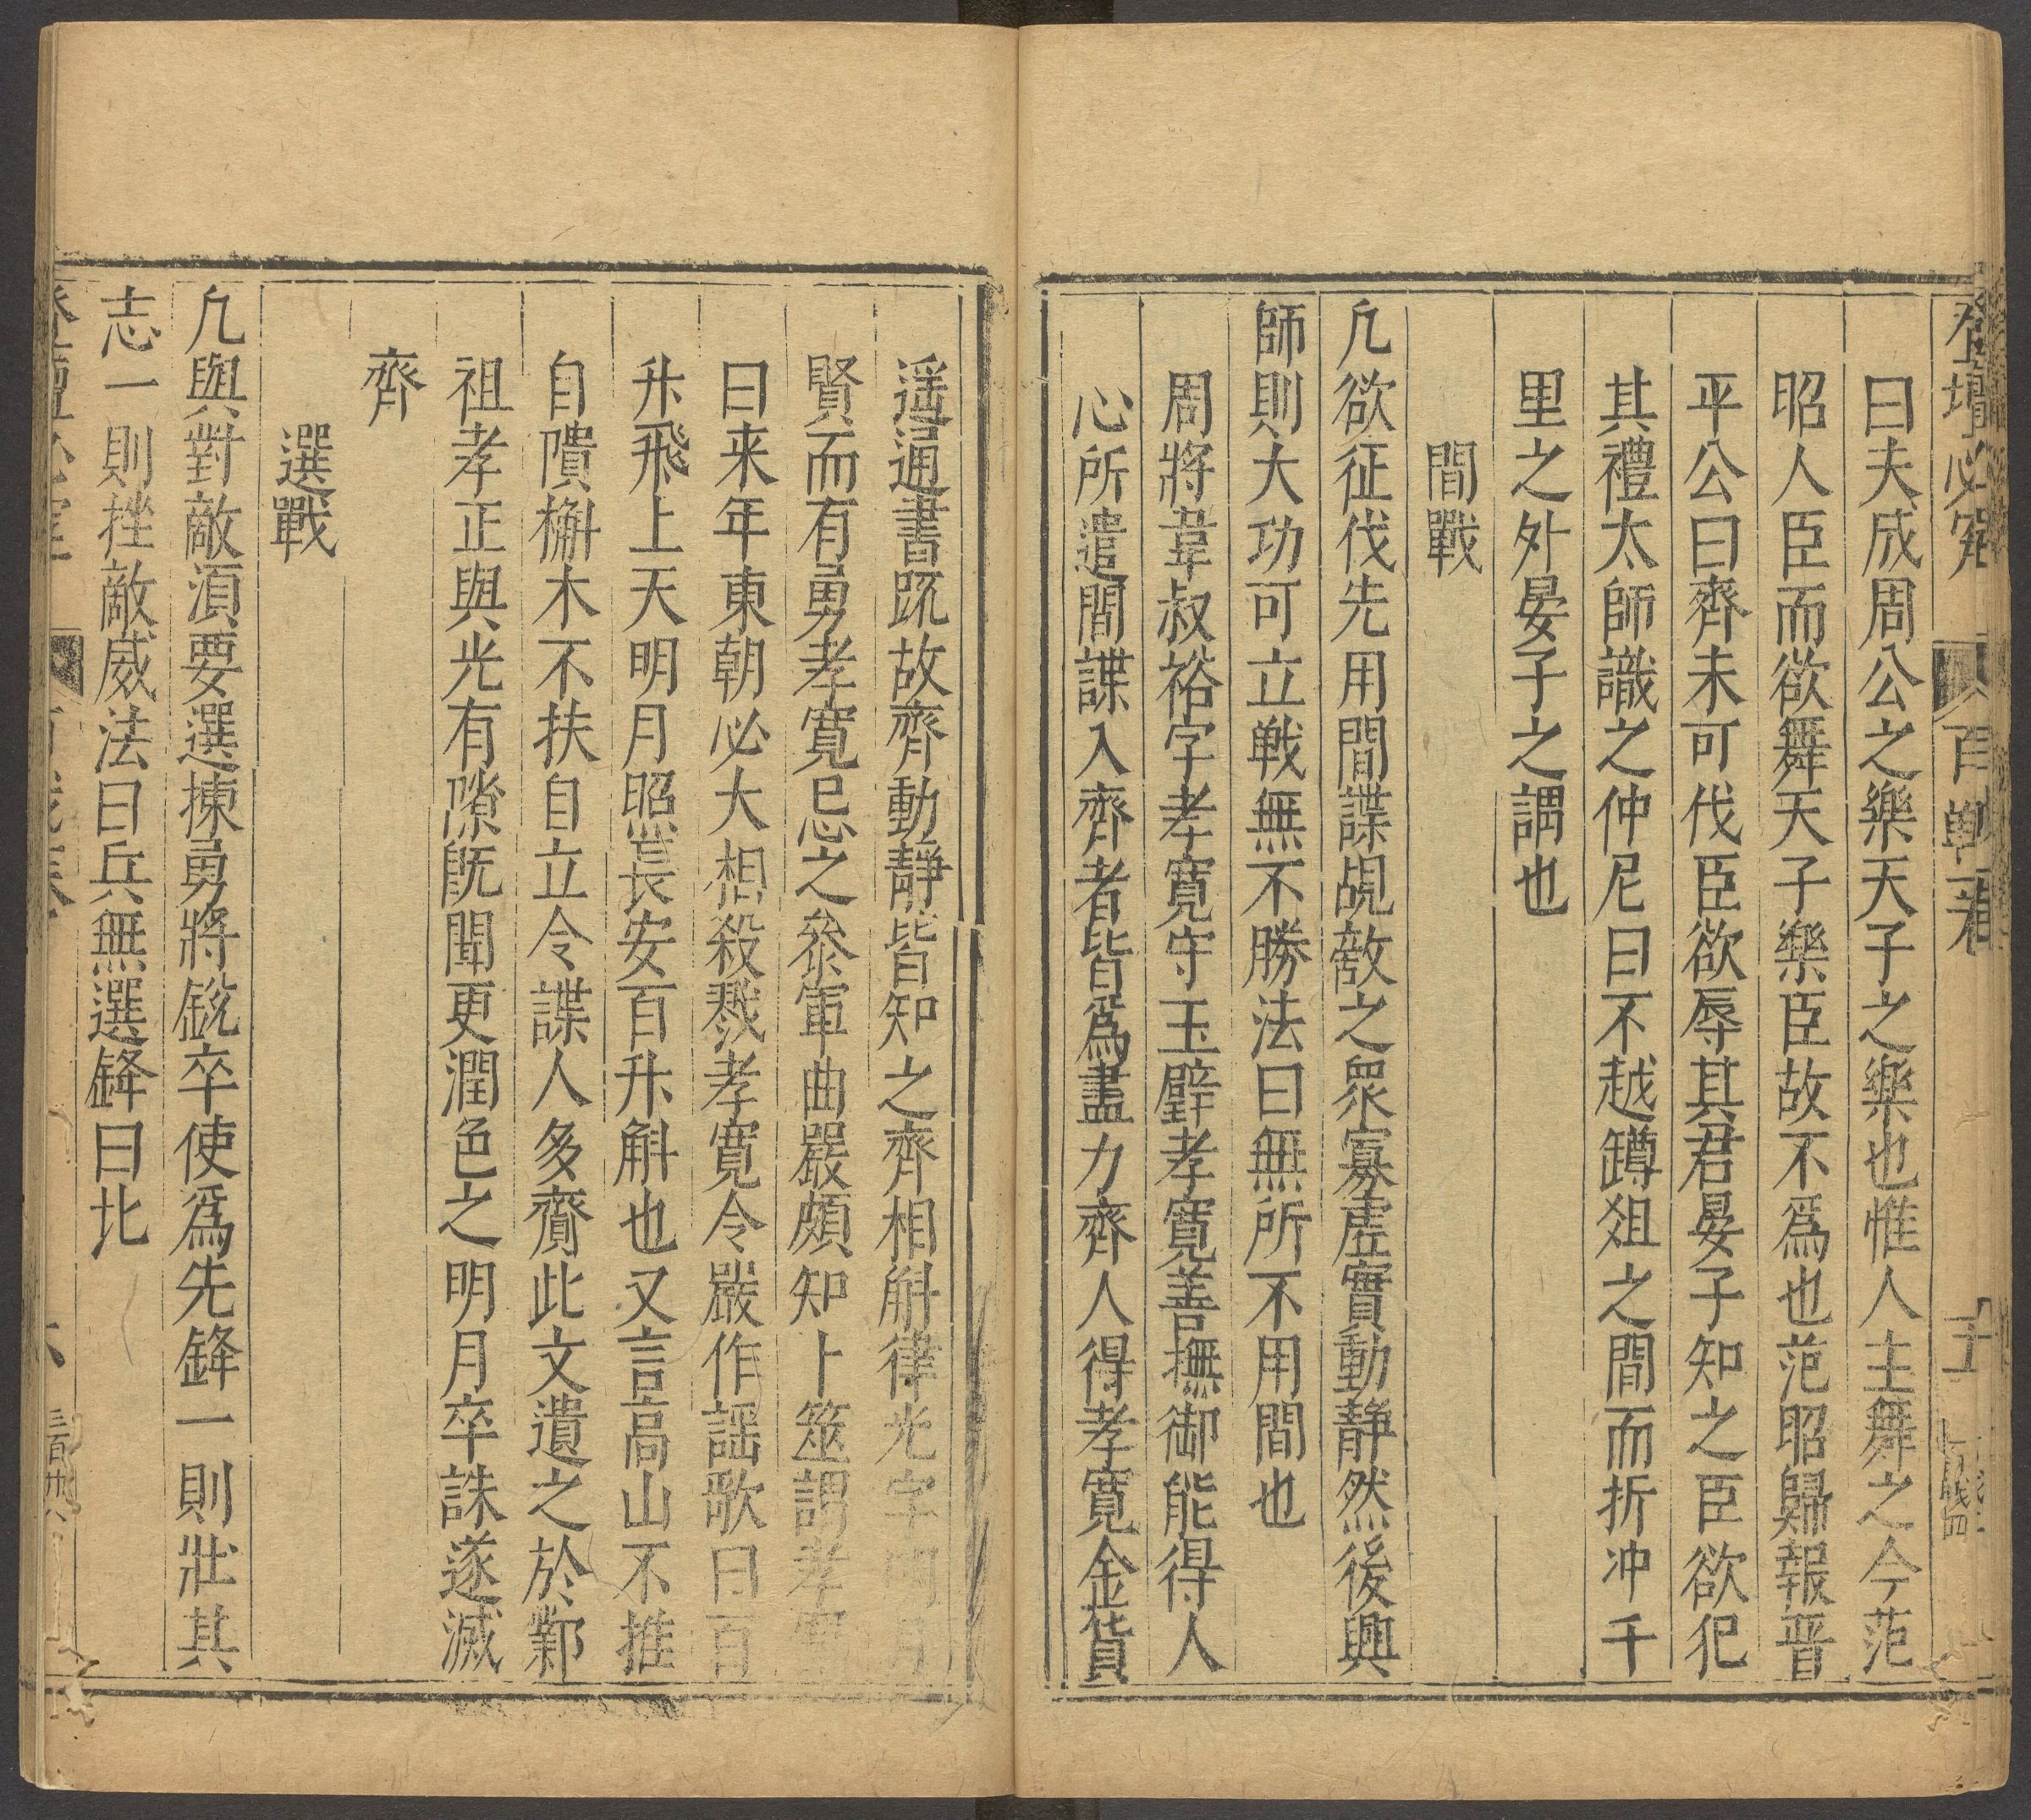 登壇必究 百戰一卷 五
曰夫成周公之樂天子之樂也惟人主舞之今范
昭人臣而欲舞天子樂臣故不爲也范昭歸報晋
平公曰齊未可伐臣欲辱其君晏子知之臣欲犯
其禮太師識之仲尼曰不越罇俎之間而折冲千
里之外晏子之謂也
間戰
凢欲征伐先用間諜覘敵之眾寡虛實動静然後興
師則大功可立戦無不勝法曰無所不用間也
周將韋叔裕字孝寬守玉壁孝寬善撫御能得人
心所遣間諜入齊者皆爲盡力齊人得孝寬金貨
遥通書䟽故齊動静皆知之齊相斛律光字明月
賢而有勇孝寬忌之叅軍曲嚴頗知卜筮謂孝寬
曰来年東朝必大相殺戮孝寬令嚴作謡歌曰百
升飛上天明月照長安百升斛也又言高山不推
自隤槲木不扶自立令諜人多賷此文遺之於鄴
祖孝正與光有隙旣聞更潤色之明月卒誅遂滅
齊
選戰
凢與對敵湏要選揀勇將銳卒使爲先鋒一則壯其
志一則挫敵威法曰兵無選鋒曰北